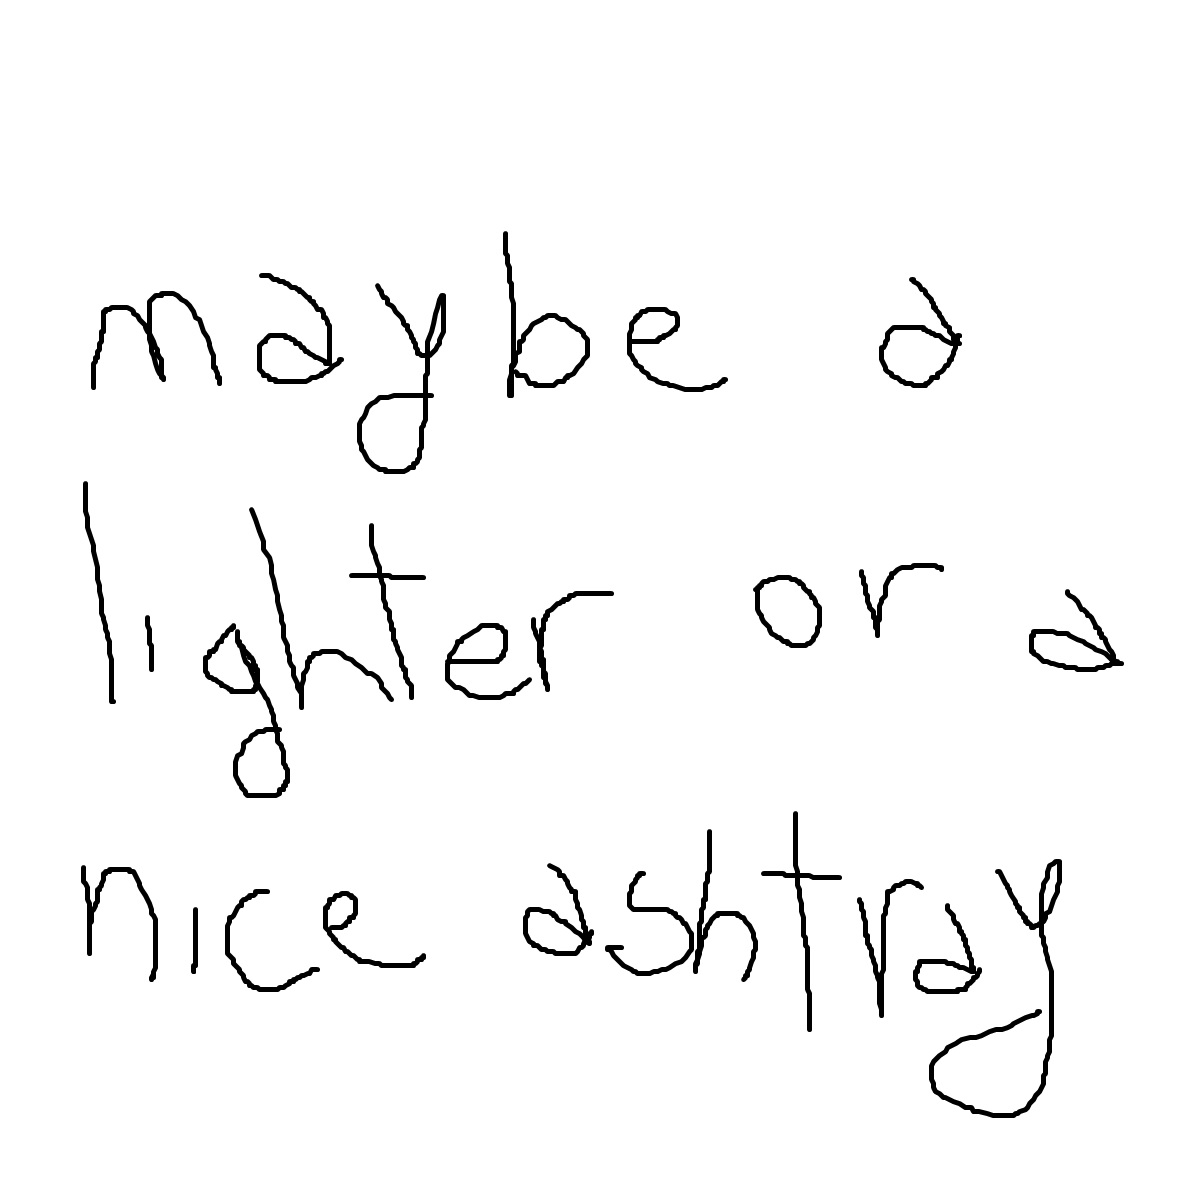 maybe a
lighter or a
nice ashtray